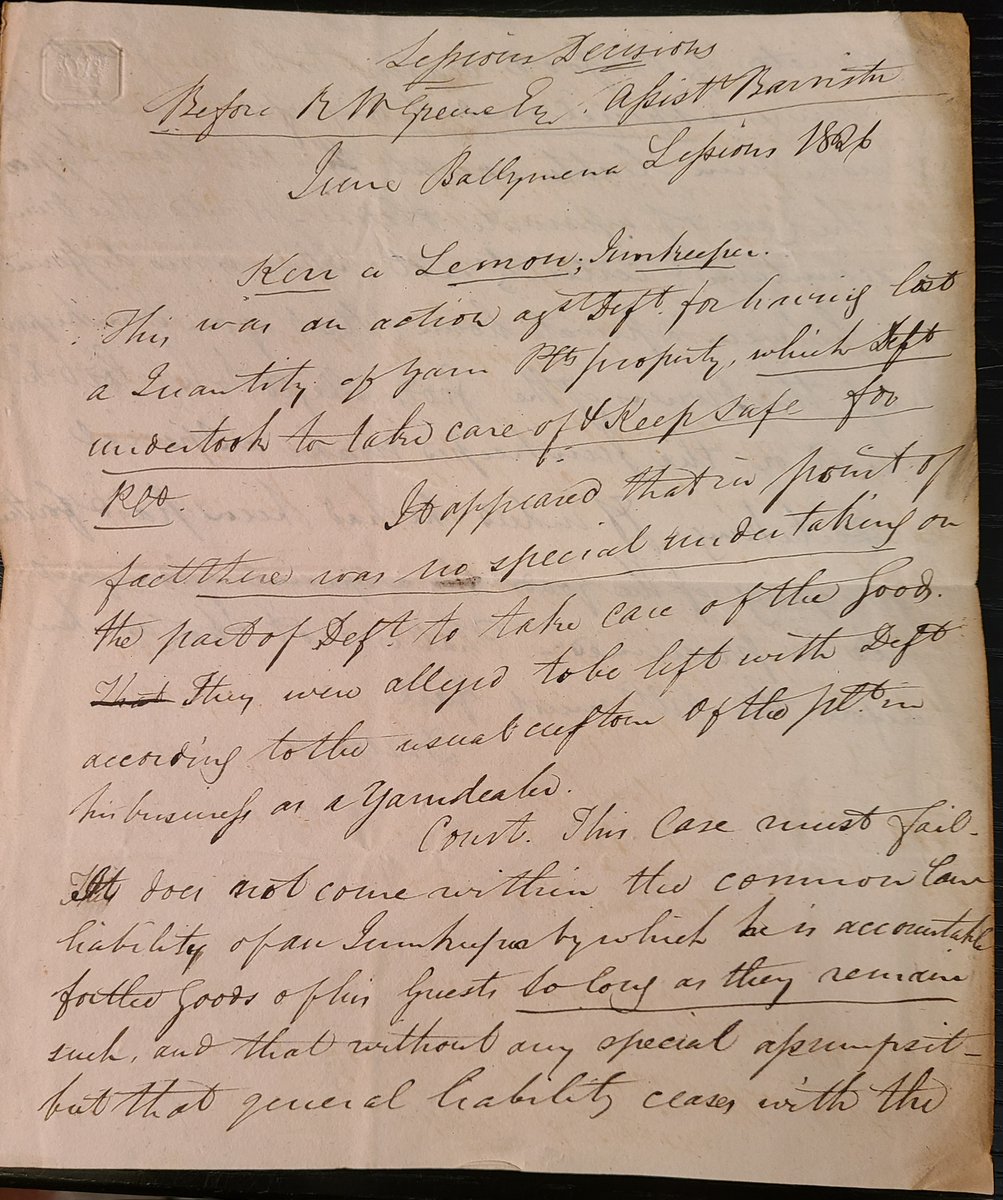 Sessions Decisions
Before R W Greene Esq. Assist. Barrister
June Ballymena Sessions 1826
Kerr a Lemon, Innkeeper.
This was an action agst Deft. for having lost
a Quantity of Yarn Plts property, which Deft
undertook to take care of & Keep safe for
Plt. It appeared that in point of
fact there was no special undertaking on
the part of Deft. to take care of the Goods.
That They were alleged to be left with Deft
according to the usual custom of the plt. in
his business as a Yarndealer.
Court. This Case must fail-
It does not come within the common Law
liability of an Innkeeper by which he is accountable
for the Goods of his Guests so long as they remain
such, and that without any special assumpsit-
but that general liability ceases with the